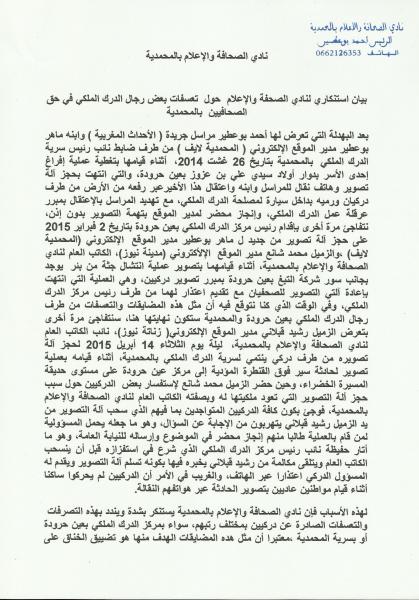 نادي الصحافة والإعلام بالمحمدية
الرئيس أحمد بوعطير
الهاتف 0662126353
نادي الصحافة والإعلام بالمحمدية
بيان استنكاري لنادي الصحفة والإعلام حول تعسفات بعض رجال الدرك الملكي في حق
الصحافيين بالمحمدية
بعد البهدلة التي تعرض لها أحمد بوعطير مراسل جريدة ( الأحداث المغربية ) وابنه ماهر
بوعطير مدير الموقع الإلكتروني ( المحمدية لايف ) من طرف ضابط نائب رئيس سرية
الدرك الملكي بالمحمدية بتاريخ 26 غشت 2014، أثناء قيامها بتغطية عملية إفراغ
إحدى الأسر بدوار أولاد سيدي علي بن عزوز بعين حرودة، والتي انتهت بحجز آلة
تصوير وهاتف نقال للمراسل وابنه واعتقال هذا الأخيرعبر رفعه من الأرض من طرف
دركيان ورميه بداخل سيارة لمصلحة الدرك الملكي، مع تهديد المراسل بالإعتقال بمبرر
عرقلة عمل الدرك الملكي، وإنجاز محضر لمدير الموقع بتهمة التصوير بدون إذن،
نتفاجئ مرة أخرى بأقدام رئيس مركز الدرك الملكي بعين حرودة بتاريخ 2 فبراير 2015
على حجز آلة تصوير من جديد ل ماهر بوعطير مدير الموقع الإلكتروني (المحمدية
لايف) ،والزميل محمد شانع مدير الموقع الإلألكتروني (مدينة نيوز)، الكاتب العام لنادي
الصحافة والإعلام بالمحمدية، أثناء قيامهما بتصوير عملية انتشال جثة من بئر يوجد
بجانب سور شركة التبغ بعين حرودة بمبرر تصوير دركيين، وهي العملية التي انتهت
بإعادة آلتي التصوير للصحفيان مع تقديم اعتذار لهما من طرف رئيس مركز الدرك
الملكي، وفي الوقت الذي كنا نتوقع فيه أن مثل هذه المضايقات والتعسفات من طرف
رجال الدرك الملكي بعين حرودة والمحمدية ستكون نهايتها هنا، سنتفاجئ مرة أخرى
بتعرض الزميل رشيد قبلاني مدير الموقع الإلكتروني( زناتة نيوز)، نائب الكاتب العام
لنادي الصحافة والإعلام بالمحمدية، ليلة يوم الثلاثاء 14 أبريل 2015 لحجز آلة
تصويره من طرف دركي ينتمي لسرية الدرك الملكي بالمحمدية، أثناء قيامه بعملية
تصوير لحادثة سير فوق القنطرة المؤدية إلى مركز عين حرودة على مستوى حديقة
المسيرة الخضراء، وحين حضر الزميل محمد شانع لإستفسار بعض الدركيين حول سبب
حجز آلة التصوير التي تعود ملكيتها له وبصفته الكاتب العام لنادي الصحافة والإعلام
بالمحمدية، فوجئ بكون كافة الدركيين المتواجدين بما فيهم الذي سحب آلة التصوير من
يد الزميل رشيد قبلاني يتهربون من الإجابة عن السؤال، وهو ما جعله يحمل المسؤولية
لمن قام بالعملية طالبا منهم إنجاز محضر في الموضوع وإرساله للنيابة العامة، وهو ما
أثار حفيظة نائب رئيس مركز الدرك الملكي الذي شرع في استفزازه قبل أن ينسحب
الكاتب العام ويتلقى مكالمة من رشيد قبلاني يخبره فيها بكونه تسلم آلة التصوير ويقدم له
المسؤول الدركي اعتذارا عبر الهاتف، والغريب في الأمر أن الدركيين لم يحركوا ساكنا
أثناء قيام مواطنين عاديين بتصوير الحادثة عبر هواتفهم النقالة.
لهذه الأسباب فإن نادي الصحافة والإعلام بالمحمدية يستنكر بشدة ويندد بهذه التصرفات
والتعسفات الصادرة عن دركيين بمختلف رتبهم، سواء بمركز الدرك الملكي بعين حرودة
أو بسرية المحمدية ،معتبرا أن مثل هذه المضايقات الهدف منها هو تضييق الخناق على